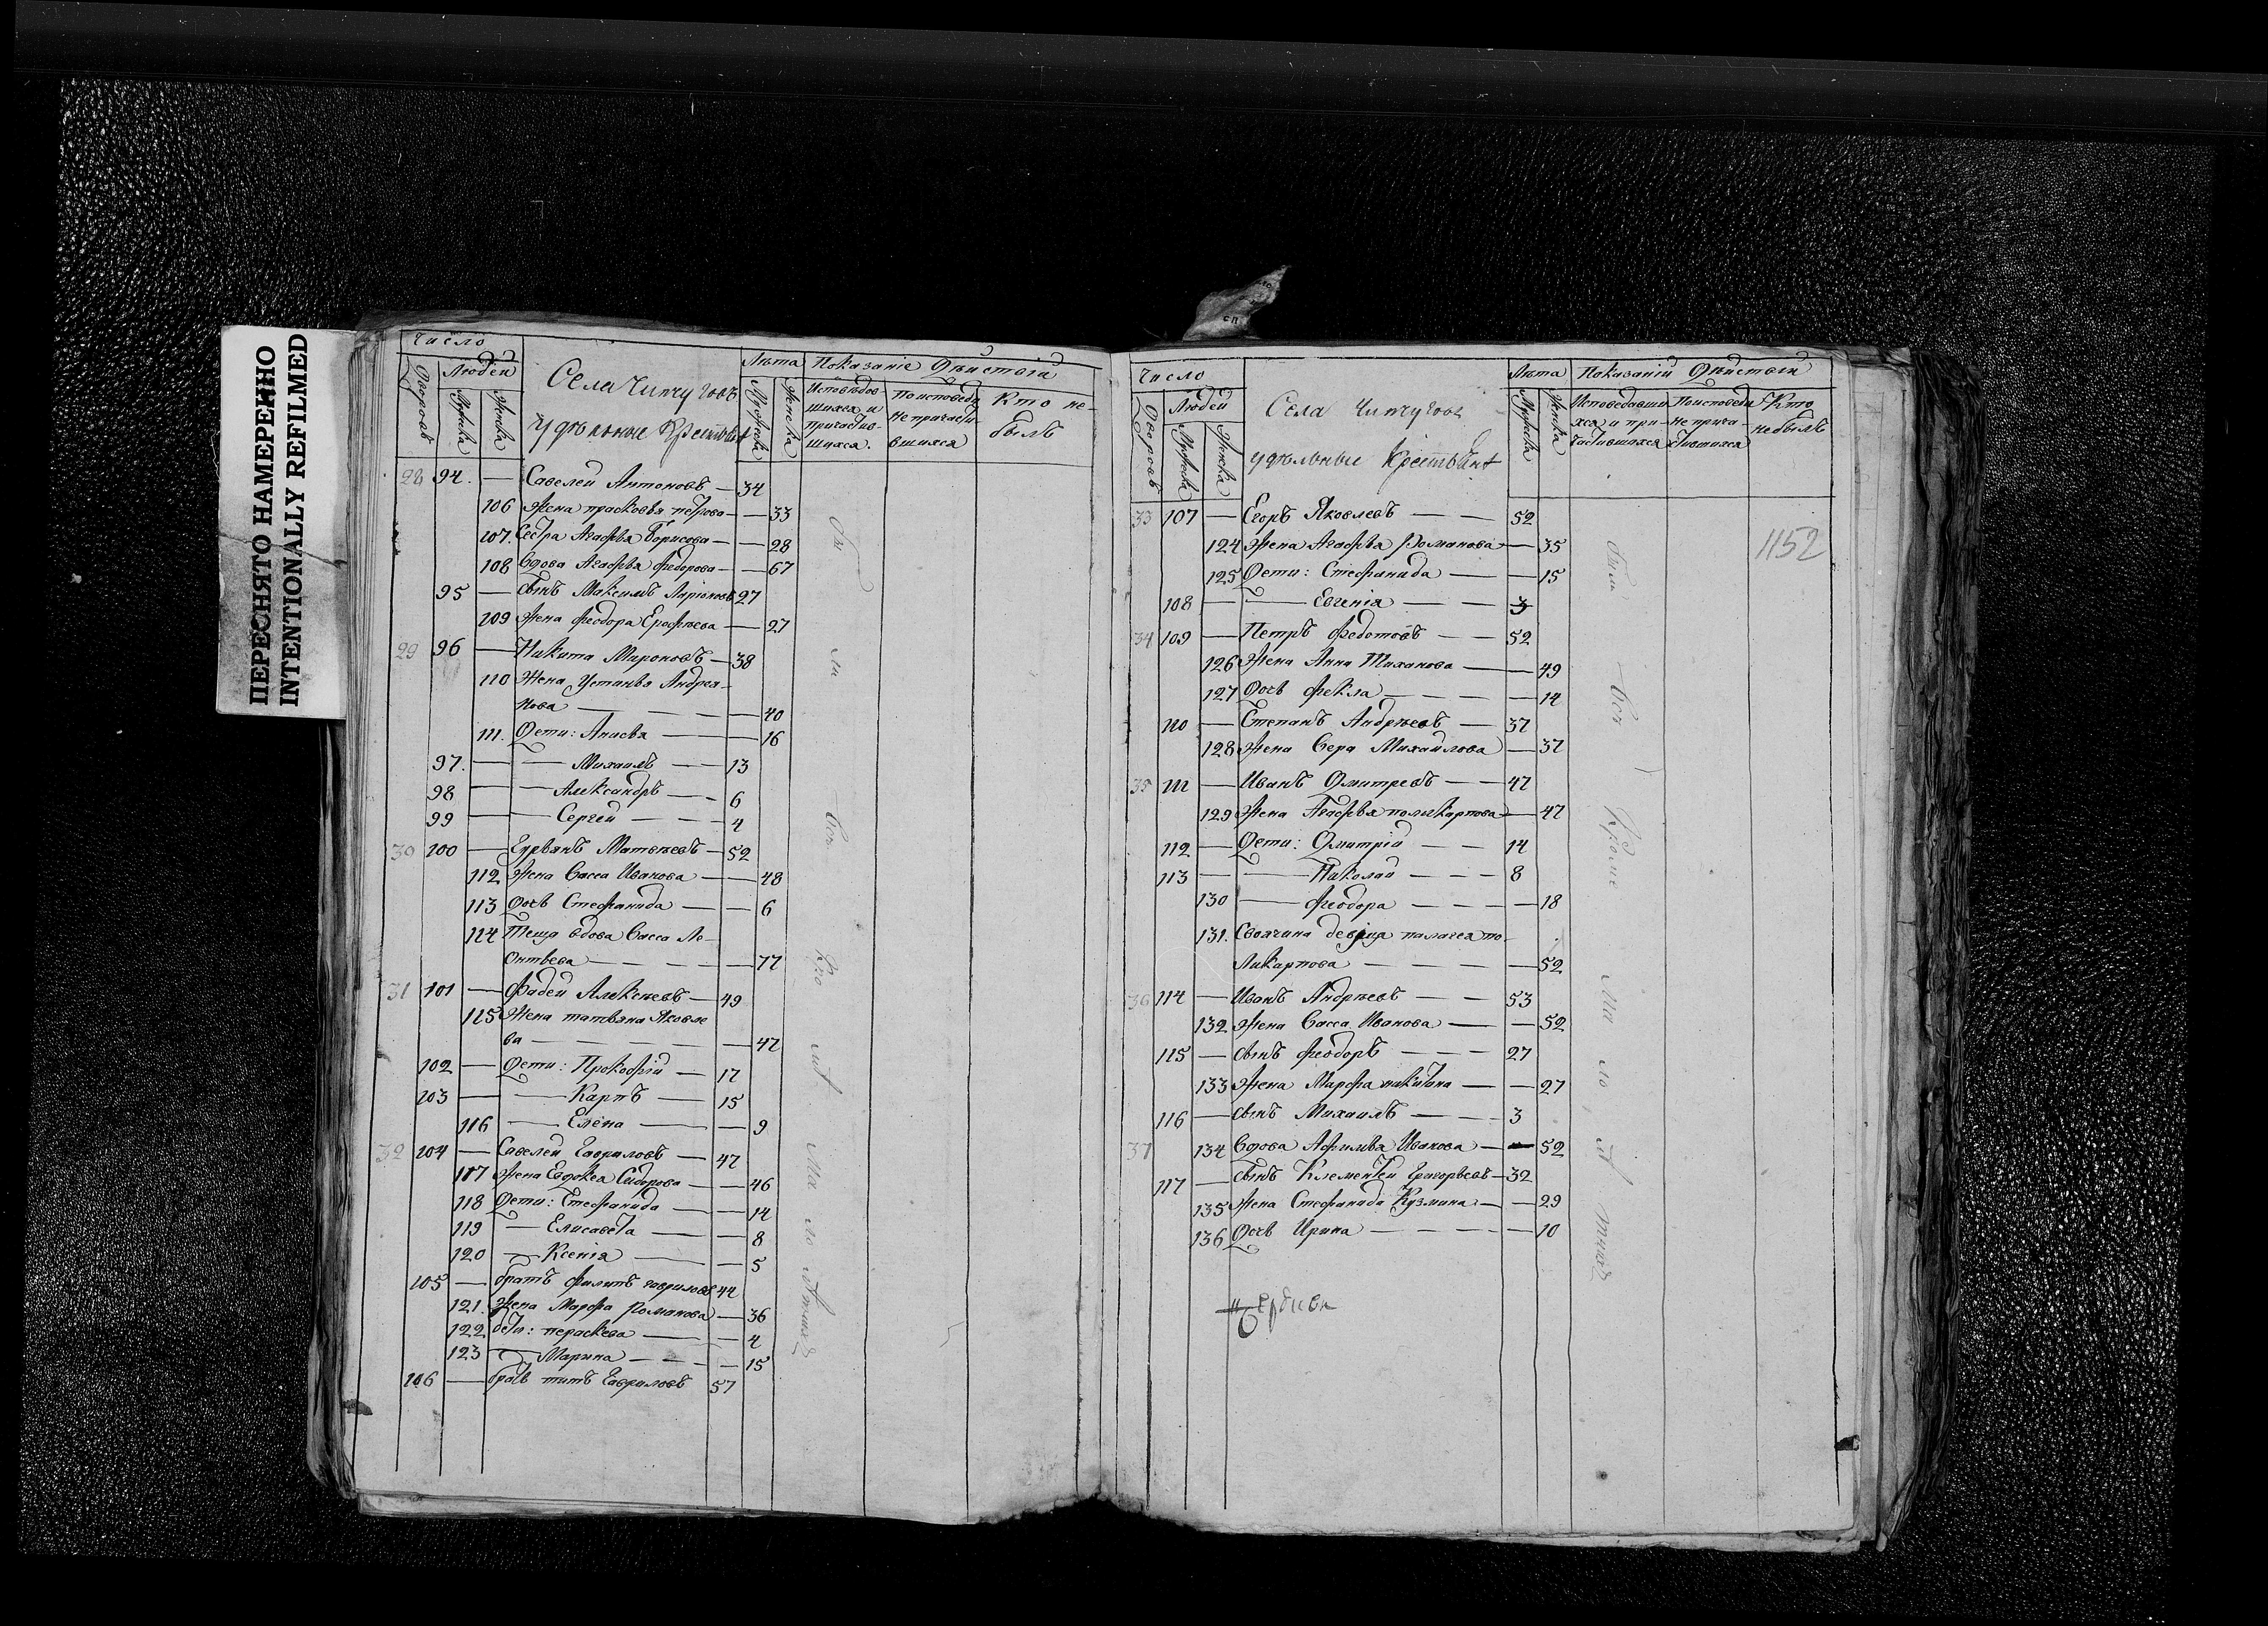 ПЕРЕСНЯТО НАМЕРЕННО
INTENTIONALLY REFILMED
Число
Дворовъ
Людей
Мужеска
Женска
Села Чипчугова
Удѣльные Крестьяне
Лѣта
Мужеска
Женска
Показаніе Дѣйствій
Исповѣдовшихся и причастившихся.
По исповеди не причастившихся
Кто не былъ
28 94. — Савелей Антоновъ — 34
106 Жена прасковья петрова — — 33
107. Сестра Агафья Борисова — — 28
108 Вдова Агафья Федорова — — 67
95 — Сынъ Максимъ Ларіоновъ 27
109 Жена Феодора Ерофѣева — 27
29 96 — Никита Мироновъ — 38
110 Жена Устинья Андрея-
нова — — — 40
111. Дети: Анисья — — 16
97. — — Михаилъ — 13
98 — — Александръ — 6
99 — — Сергей — — 4
30 100 — Матвѣевъ — 52
112 Жена Васса Иванова — — 48
113 Дочь Стефанида — — 6
114 Теща вдова Васса Ле-
онтьева — — — 77
31 101 — Фадей Алексѣевъ — 49
115 Жена татьяна Яковле
ва — — — 47
102 — Дети: Прокофій — 17
103 — — Карпъ — 15
116 — Елена — — 9
32 104 — Савелей Гавриловъ — 47
117 Жена Евдокея Сидорова — — 46
118 Дети: Стефанида — — 14
119 — Елисавета — — 8
120 — Ксенія — — 5
105 — братъ филипъ гавриловъ 44
121. Жена Марфа Романова — 36
122 дети: пераскева — — 4
123 — Марина — — 15
106 — братъ титъ Гавриловъ 57
Бы ли Вси Кро мѣ Ма ло лѣтнихъ
Число
Дворовъ
Людей
Мужеска
Женска
Села Чипчугова
удѣльные Крестьяне
Лѣта
Мужеска
Женска
Показаніи Дѣйствій
Исповедавшихся и причастившихся
По исповеди не причастившихся
Кто не былъ
1152
33 107 — Егоръ Яковлевъ — — 52
124 Жена Агафья Романова — 35
125 Дети: Стефанида — — 15
108 — — Евгенія — — 3
34 109 — Петръ Федотовъ — — 52
126 Жена Анна Тиханова — — 49
127 Дочь Фекла — — — 14
110 — Степанъ Андрѣевъ — 37
128 Жена Вера Михайлова — 37
35 111 — Иванъ Дмитревъ — — 47
129 Жена Агафья поликарпова — 47
112 — Дети: Дмитрій — — 14
113 — — Николай — — — 8
130 — Феодора — — — 18
131. Своячина девица палагея по-
ликарпова — — — 52
36 114 — Иванъ Андрѣевъ — — 53
132 Жена Васса Иванова — — 52
115 — Сынъ Феодоръ — — — 27
133 Жена Марфа никитина — — 27
116 — Сынъ Михаилъ — — — 3
37 134 Вдова Афимья Иванова — — 52
117 — Сынъ Клементей Григорьевъ — 32
135 Жена Стефанида Кузмина — — 29
136 Дочь Ирина — — — 10
Были Вси Кроме Ма ло лѣ тнихъ